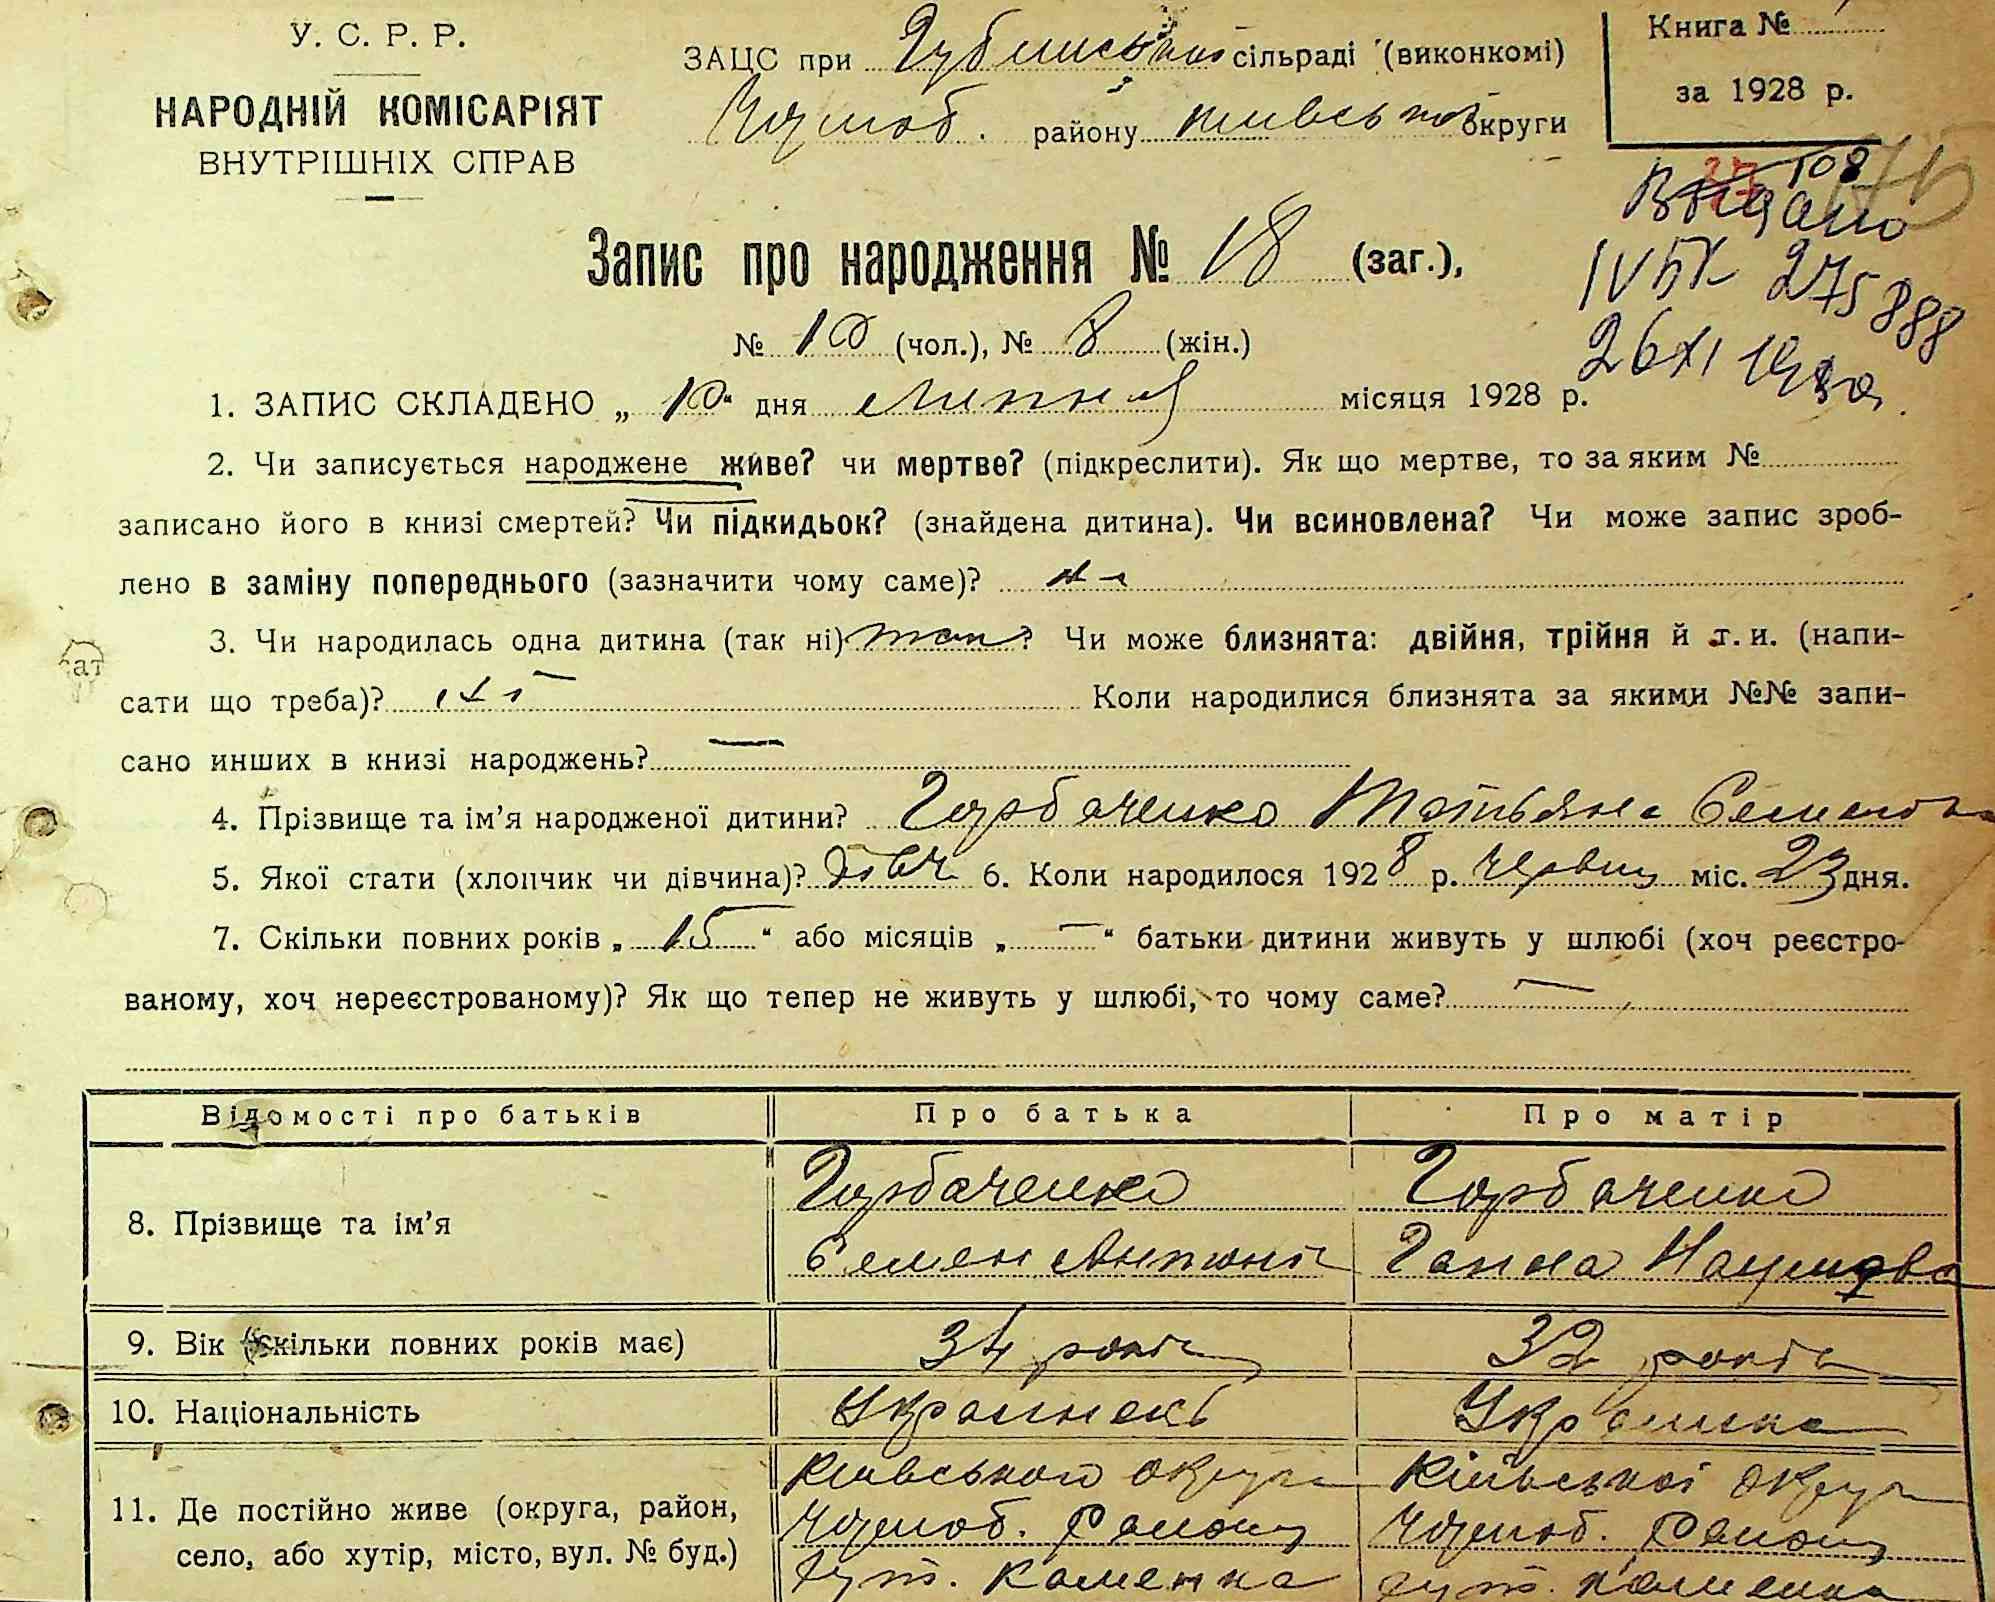 У. С. Р. Р.
НАРОДНІЙ КОМІСАРІЯТ
ВНУТРІШНІХ СПРАВ
ЗАЦС при Губинській сільраді (виконкомі)
Чорноб. району Київської округи
Книга №
за 1928 р.
108
Видано
IV БЖ 275888
26 XI
Запис про народження № 18 (заг.),
№ 10 (чол.), № 8 (жін.)
1. ЗАПИС СКЛАДЕНО „ 10 “ дня липня місяця 1928 р.
2. Чи записується народжене живе? чи мертве? (підкреслити). Як що мертве, то за яким №
записано його в книзі смертей? Чи підкидьок? (знайдена дитина). Чи всиновлена? Чи може запис зроб-
лено в заміну попереднього (зазначити чому саме)?
3. Чи народилась одна дитина (так ні) так? Чи може близнята: двійня, трійня й т. и. (напи-
сати що треба)? Коли народилися близнята за якими №№ запи-
сано инших в книзі народжень? —
4. Прізвище та ім'я народженої дитини? Горбаченко Татьяна Семенова
5. Якої стати (хлопчик чи дівчина)? дівч 6. Коли народилося 1928 р. червня міс. 23 дня.
7. Скільки повних років „ 15 “ або місяців „ — “ батьки дитини живуть у шлюбі (хоч реєстро-
ваному, хоч нереєстрованому)? Як що тепер не живуть у шлюбі, то чому саме? —
Відомості про батьків Про батька Про матір
8. Прізвище та ім'я Горбаченко Горбаченко
Семен Антонів Ганна Наумова
9. Вік (скільки повних років має) 34 років 32 років
10. Національність Українець Українка
11. Де постійно живе (округа, район, село, або хутір, місто, вул. № буд.) Київського округа Київської округи
Чорноб. Району Чорноб. Району
хут. Каменка хут. Каменка